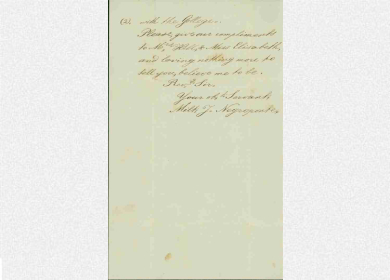 with the Gologer.
Please, give our compliments
to Mrs. Hill, & Miss Elizabeth,
and having nothing more to
tell you, believe me to be.
Revd. Sir.
Your obt. Servant
Milt. J. Negroponte